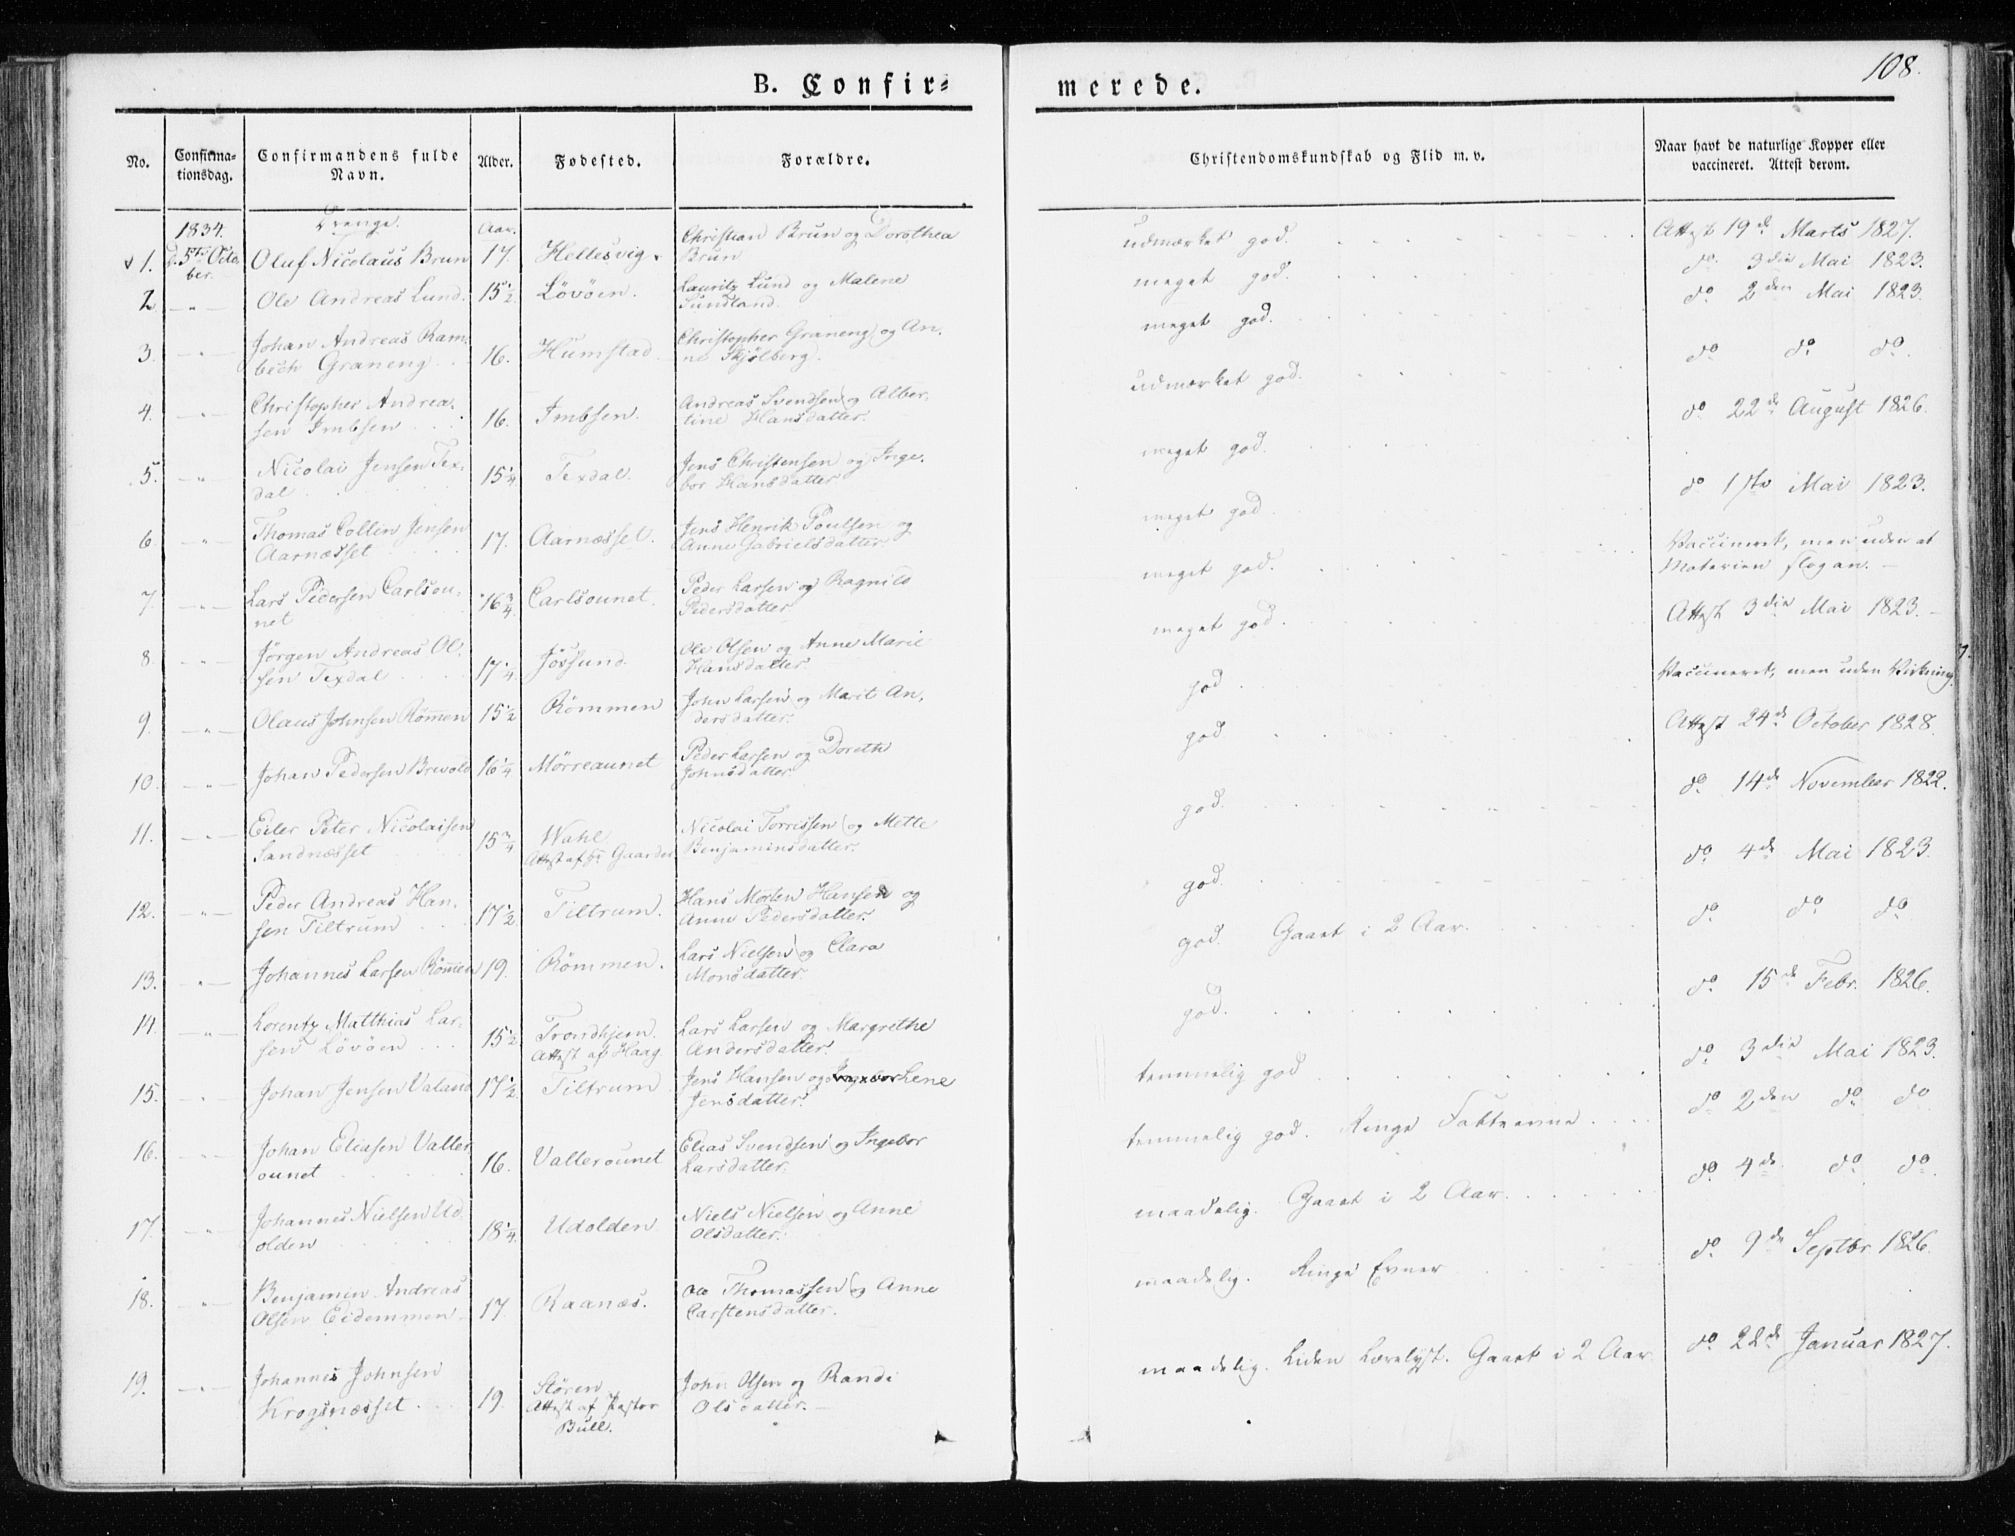 108.
B. Confir-
merede.
No.
Confirma-
tionsdag.
Confirmandens fulde
Navn.
Alder.
Fødested.
Forældre.
Christendomskundskab og Flid m. v.
Naar havt de naturlige Kopper eller
vaccineret. Attest derom.
1834.
Drenge.
Aar.
1. d. 5te Octo-
ber.
Oluf Nicolaus Brun 17. Heltesvig. Christian Brun og Dorothea
Brun
udmærket god. Attest 19de Marts 1827.
2 -"- Ole Andreas Lund. 15 1/2 Lövöen. Lauritz Lund og Malene
Sundland.
meget god. do 3die Mai 1823.
3. -"- Johan Andreas Ram-
bech Graneng 16. Humstad. Christopher Graneng og An-
ne Skjølberg.
meget god. do 2den Mai 1823.
4. -"- Christopher Andrea-
sen Imbsen 16. Imbsen. Andreas Svendsen og Alber-
tine Hansdatter.
udmærket god. do do do.
5. " Nicolai Jensen Tex-
dal 15 1/4 Texdal. Jens Christensen og Inge-
bor Hansdatter
meget god. do 22de August 1826.
6 " Thomas Collin Jensen
Aarnæsset 17. Aarnæsset. Jens Henrik Poulsen og
Anne Gabrielsdatter.
meget god. do 1ste Mai 1823.
7. -"- Lars Pedersen Carlsou-
net 16 3/4 Carlsounet. Peder Larsen og Ragnild
Pedersdatter
meget god. Vaccineret, men uden at
Materien slog an.
8. " Jörgen Andreas Ol-
sen Texdal 17 1/4 Jössund. Ole Olsen og Anne Marie
Hansdatter.
meget god. Attest 3die Mai 1823.
9. -"- Olaus Johnsen Römen 15 1/2 Römmen John Larsen og Marit An-
dersdatter.
god. Vaccineret, men uden Virkning.
10. -"- Johan Pedersen Brevold 16 1/4 Mörreaunet Peder Larsen og Doreth
Johnsdatter
god Attest 24de October 1828.
11. -"- Eiler Peter Nicolaisen
Sandnæsset 15 3/4 Wahl
Attest af Gaarder Nicolai Torrissen og Mette
Benjaminsdatter.
god. do 14de November 1822.
12. -"- Peder Andreas Han-
sen Tiltrum 17 1/2 Tiltrum. Hans Morten Hansen og
Anne Pedersdatter.
god. do 4de Mai 1823.
13. -"- Johannes Larsen Römen 19. Römmen. Lars Nielsen og Clara
Monsdatter.
god. Gaaet i 2 Aar. do do do
14. -"- Lorentz Matthias Lar-
sen Lövöen 15 1/2 Trondhjem.
Attest af Haag Lars Larsen og Margrethe
Andersdatter.
god. do 15de Febr. 1826.
15. " Johan Jensen Valand 17 1/2 Tiltrum Jens Hansen og Ingebor Lene
Jensdatter.
temmelig god do 3die Mai 1823.
16. -"- Johan Eliasen Valler-
ounet 16. Vallerounet Elias Svendsen og Ingebor
Larsdatter.
temmelig god. Ringe Fatteevne do 2den do do
17. " Johannes Nielsen Ud-
olden 18 1/4. Udolden Niels Nielsen og Anne
Olsdatter.
maadelig. Gaaet i 2 Aar. do 4de do do.
18. -"- Benjamin Andreas
Olsen Eidemmen 17 Raanæs. Ole Thomassen og Anne
Carstensdatter.
maadelig. Ringe Evner do 9de Septbr 1826.
19. -"- Johannes Johnsen
Krogsnæsset 19. Stören
Attest af Pastor
Bull. John Olsen og Randi
Olsdatter.
maadelig. Liden Lærelyst. Gaaet i 2 Aar do 22de Januar 1827.